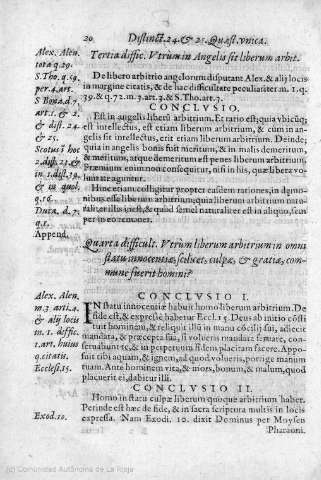 20 Distinct. 24. & 25. Quæst. vnica.
Tertia diffic. Vtrùm in Angelis sit liberum arbit.
Alex. Alen.
tota q. 29.
S. Tho. q. 59.
per 4. art.
S Bona. d. 7.
art. 1. & 2.
& dist. 24.
& 25.
Scotus i hoc
2. dist. 23. &
in 1. dist. 39.
& in quol.
q. 16.
Dura. d. 7.
q. 1.
Append.
De libero arbitrio angelorum disputant Alex. & alij locis
in margine citatis, & de hac difficultate peculiariter m. 1. q.
39. & q. 72. m. 3. art. 3. & S. Tho. art. 7.
CONCLVSIO.
Est in angelis liberũ arbitrium. Et ratio est; quia vbicũq;
est intellectus, est etiam liberum arbitrium, & cùm in ange-
lis sit intellectus, erit etiam liberum arbitrium. Deinde;
quia in angelis bonis fuit meritum, & in malis demeritum,
& meritum, atque demeritum est penes liberum arbitrium.
Præmium enim non consequitur, nisi in his, quæ libera vo-
luntate aguntur.
Hinc etiam colligitur propter easdem rationes, in dæmo-
nibus esse liberum arbitrium, quia liberum arbitrium natu-
rale est
per in eo remanet.
Quarta difficult. Vtrùm liberum arbitrium in omni
statu innocentiæ, scilicet, culpæ, & gratiæ, com-
mune fuerit homini?
CONCLVSIO I.
Alex. Alen.
m. 3. arti. 4.
& alij locis
in 1. diffic.
1. art. huius
q. citatis.
Ecclesi. 15.
IN statu innocentiæ habuit homo liberum arbitrium. De
fide est, & expressè habetur Eccl. 15. Deus ab initio cõsti
tuit hominem, & reliquit illũ in manu cõsilij sui, adiecit
mandata, & præcepta sua, si volueris mandata seruare, con-
seruabunt te, & in perpetuum fidem placitam facere. Appo-
suit tibi aquam, & ignem, ad quod volueris, porrige manum
tuam. Ante hominem vita, & mors, bonum, & malum, quod
placuerit ei, dabitur illi.
CONCLVSIO II.
Exod. 10.
Homo in statu culpæ liberum quoque arbitrium habet.
Perinde est hæc de fide, & in sacra scriptura multis in locis
expressa. Nam Exodi. 10. dixit Dominus per Moysen
Pharaoni.
(c) Comunidad Autónoma de La Rioja